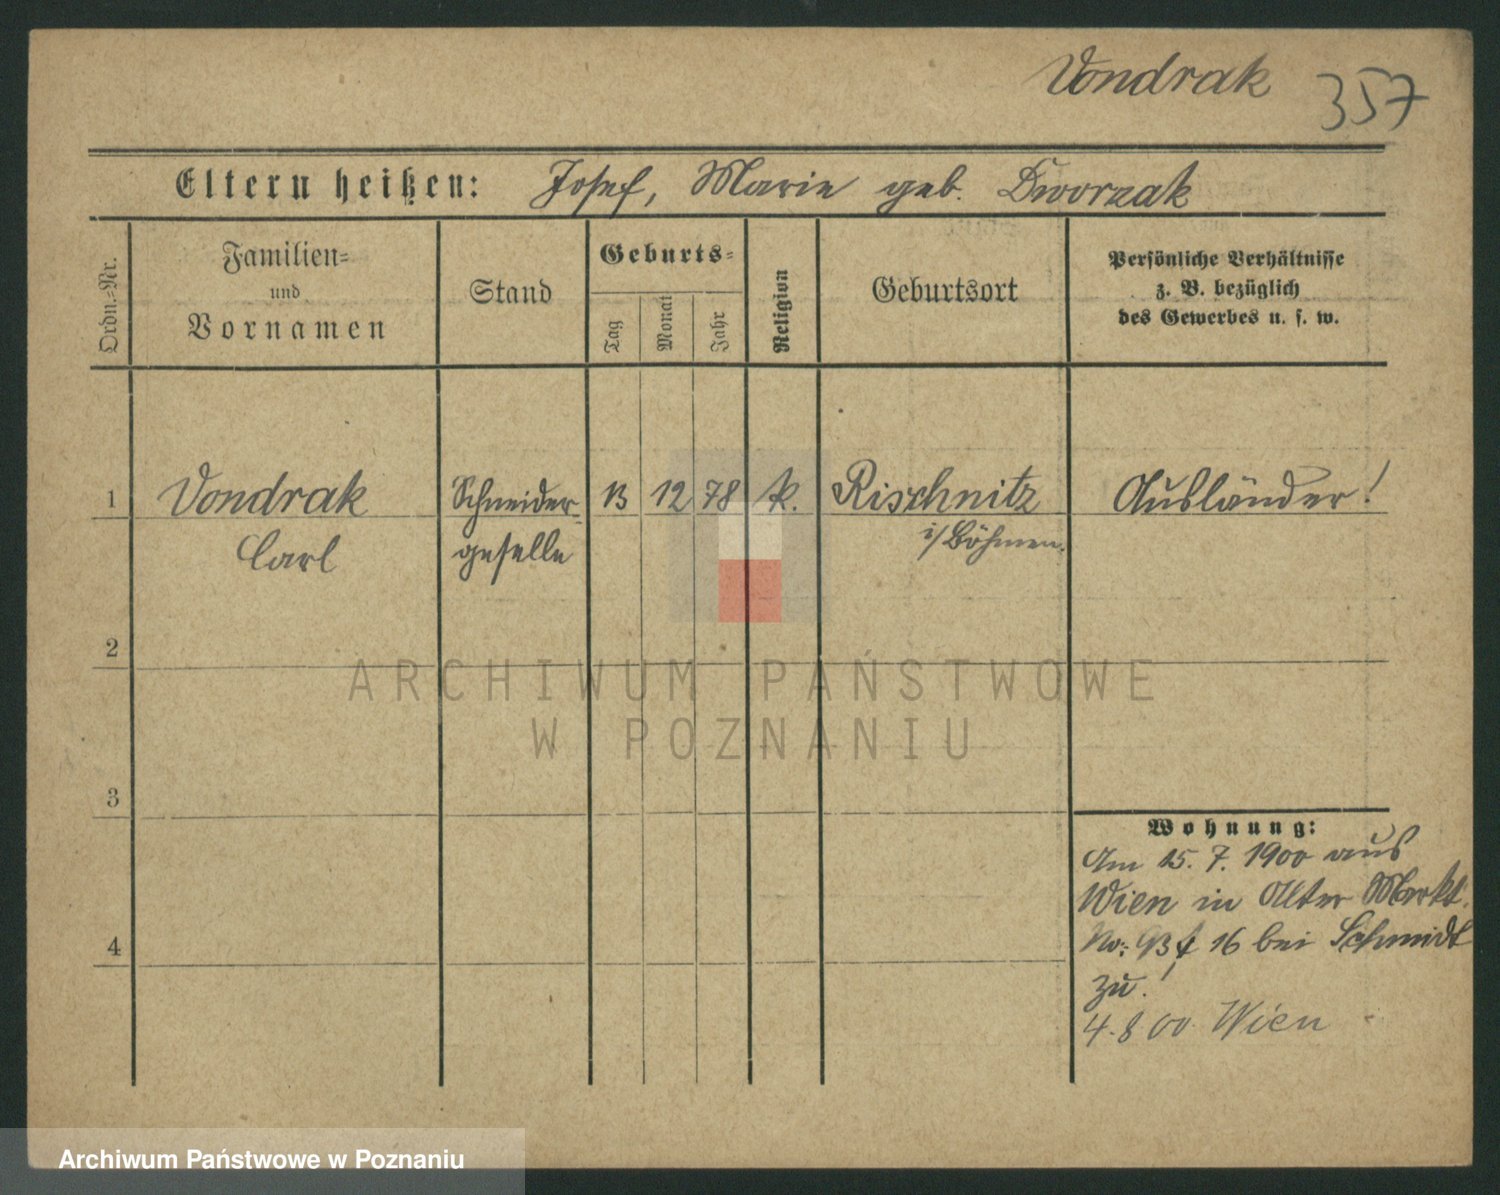 Vondrak 357
Eltern heißen: Josef, Marie geb. Dworzak
Ordn.-Nr.
Familien-
und
Vornamen
Stand
Geburts-
Tag
Monat
Jahr
Religion
Geburtsort
Persönliche Verhältnisse
z. B. bezüglich
des Gewerbes u. s. w.
1 Vondrak Schneider- 13 12 78 k. Rischnitz Ausländer!
Carl geselle i/Böhmen.
2
3
4
Wohnung:
Am 15. 7. 1900 aus
Wien in Alter Markt
No: 16 bei Schmidt
zu!
4. 8 00 Wien
ARCHIWUM PAŃSTWOWE
W POZNANIU
Archiwum Państwowe w Poznaniu